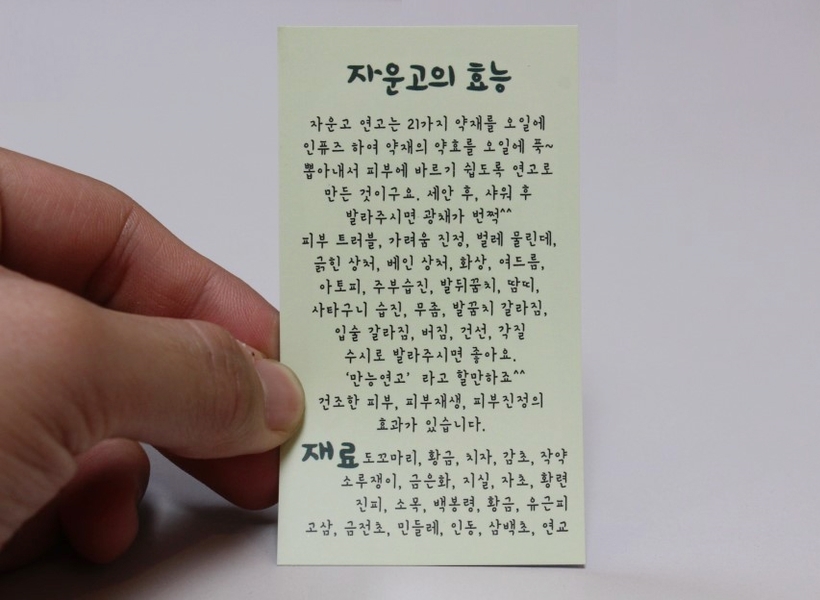 자운고의 효능
자운고 연고는 21가지 약재를 오일에
인퓨즈 하여 약재의 약효를 오일에 푹~
뽑아내서 피부에 바르기 쉽도록 연고로
만든 것이구요. 세안 후, 샤워 후
발라주시면 광채가 번쩍^^
피부 트러블, 가려움 진정, 벌레 물린데,
긁힌 상처, 베인 상처, 화상, 여드름,
아토피, 주부습진, 발뒤꿈치, 땀띠,
사타구니 습진, 무좀, 발꿈치 갈라짐,
입술 갈라짐, 버짐, 건선, 각질
수시로 발라주시면 좋아요.
'만능연고' 라고 할만하죠^^
건조한 피부, 피부재생, 피부진정의
효과가 있습니다.
재료 도꼬마리, 황금, 치자, 감초, 작약
소루쟁이, 금은화, 지실, 자초, 황련
진피, 소목, 백봉령, 황금, 유근피
고삼, 금전초, 민들레, 인동, 삼백초, 연교